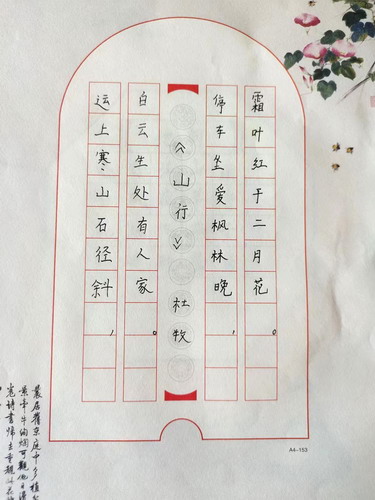 运上寒山石径斜,
白云生处有人家。
《山行》 杜牧
停车坐爱枫林晚,
霜叶红于二月花。
A4-153